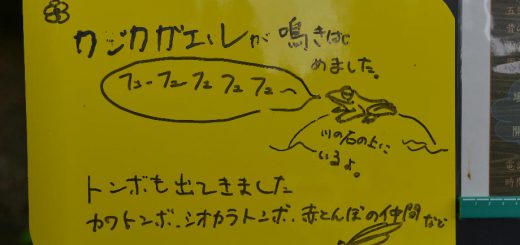 カジカガエルが鳴きはじ
めました。
フュ-フュフュフュフュ〜
川の石の上に
いるよ。
トンボも出てきました
カワトンボ、シオカラトンボ、赤とんぼの仲間など